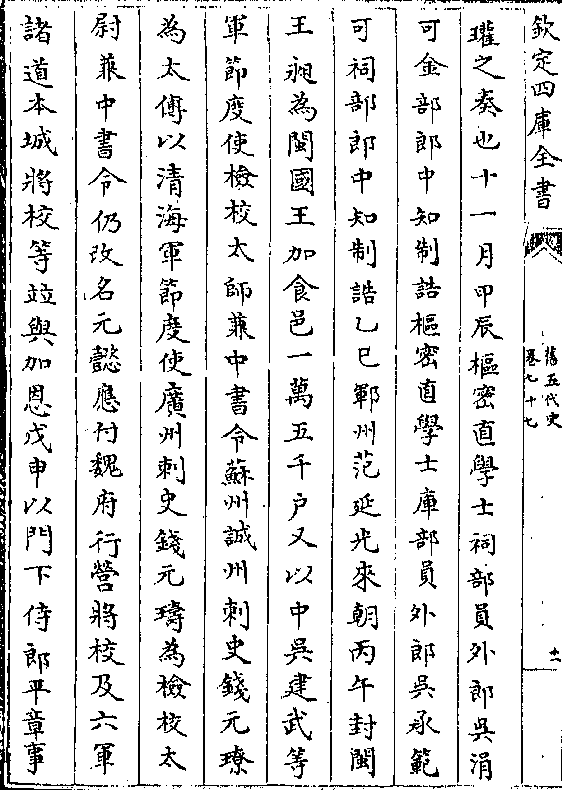 欽定四庫全書
舊五代史
卷七十七
十一
瓘之奏也十一月甲辰樞密直學士祠部員外郎吳涓
可金部郎中知制誥樞密直學士庫部員外郎吳承範
可祠部郎中知制誥乙巳鄆州范延光來朝丙午封閩
王昶為閩國王加食邑一萬五千户又以中吳建武等
軍節度使檢校太師兼中書令蘇州誠州刺史錢元璙
為太傅以清海軍節度使廣州刺史錢元璹為檢校太
尉兼中書令仍改名元懿應付魏府行營將校及六軍
諸道本城將校等竝與加恩戊申以門下侍郎平章事